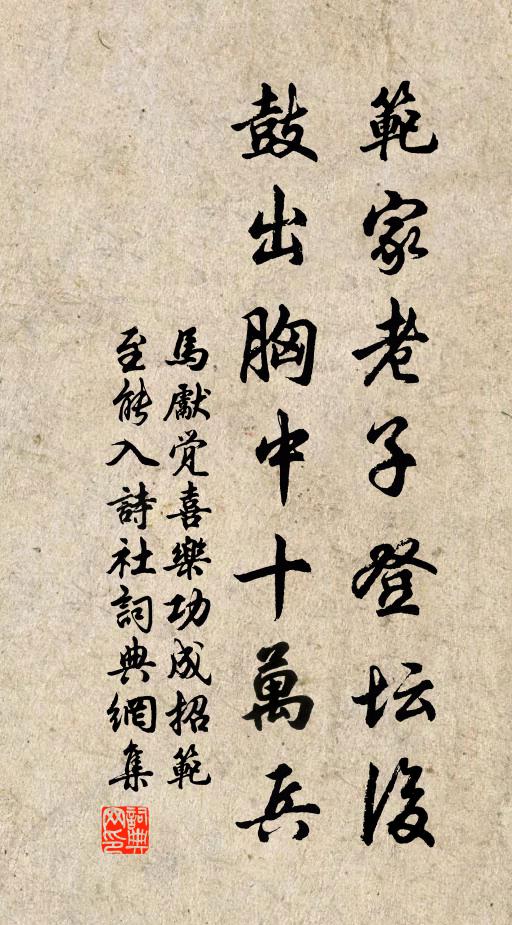 範家老子登坛後
鼓出胸中十萬兵
馬獻覚喜樂功成招範
至能入詩社詞典網集
詞典网印